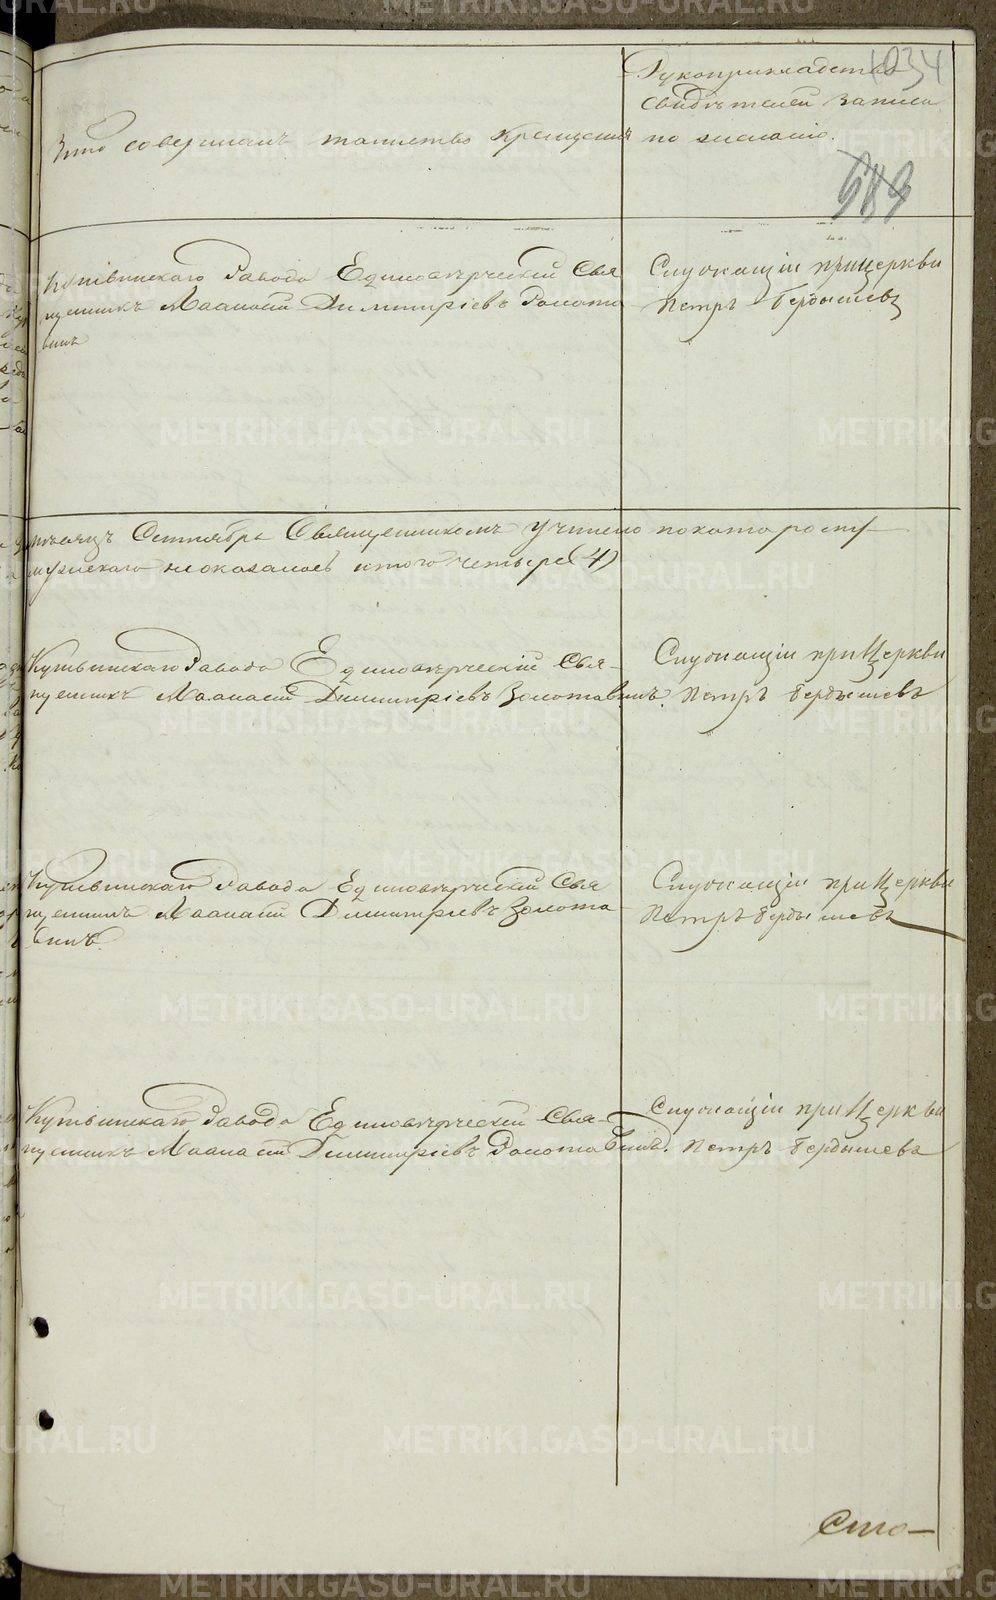 1034
Рукоприкладство
свидѣтелей записи
Кто совершалъ таинство крещенія
по желанію.
689
Кушвинскаго Завода Единовѣрческій Свя
щенникъ Маанасій Димитріевъ Золота
винъ
Служащіи прицеркви
Петръ Бердышевъ
мѣсяцъ Сентябрь Священникомъ учтено покоторому
мужскаго неоказалось итого четыре (4)
Кушвинскаго Завода Единовѣрческій Свя-
щенникъ Маанасій Димитріевъ Золотавинъ.
Служащіи при Церкви
Петръ Бердышевъ
Кушвинскаго Завода Единовѣрческій Свя
щенникъ Маанасій Димитріевъ Золота
винъ.
Служащіи при Церкви
Петръ Бердышевъ
Кушвинскаго Завода Единовѣрческій Свя-
щенникъ Маанасій Димитріевъ Золотавинъ.
Служащіи при Церкви
Петръ Бердышевъ
Сто-
METRIKI.GASO-URAL.RU